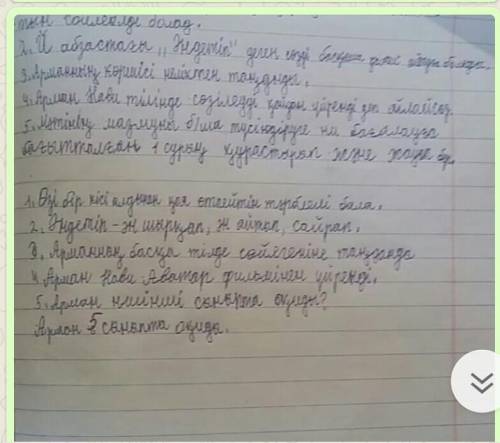 тын сөйлемді болад.
2. Й абзастағы ,,Әндетіп" деген сөзді басқаша қалай айтуға болады.
3. Арманның көршісі неліктен таңданды.
4. Арман Нави тілінде сөзілеуді қайдан үйренді деп ойлайсыз
5. Мәтіннің мазмұны б/ша түсіндіруге не бағалауға
бағытталған 1 сұрақ құрастырып және жауап бер
1. Өзі бір кісі алдынан қия өтпейтін тәрбиелі бала.
2. Әндетіп - ән шырқап, ән айтып, сайрап.
3. Арманның басқа тілде сөйлегеніне таңғалда
4. Арман Нави Аватар фильмінен үйренді.
5. Арман нешінші сыныпта оқиды?
Арман 5 сыныпта оқида.